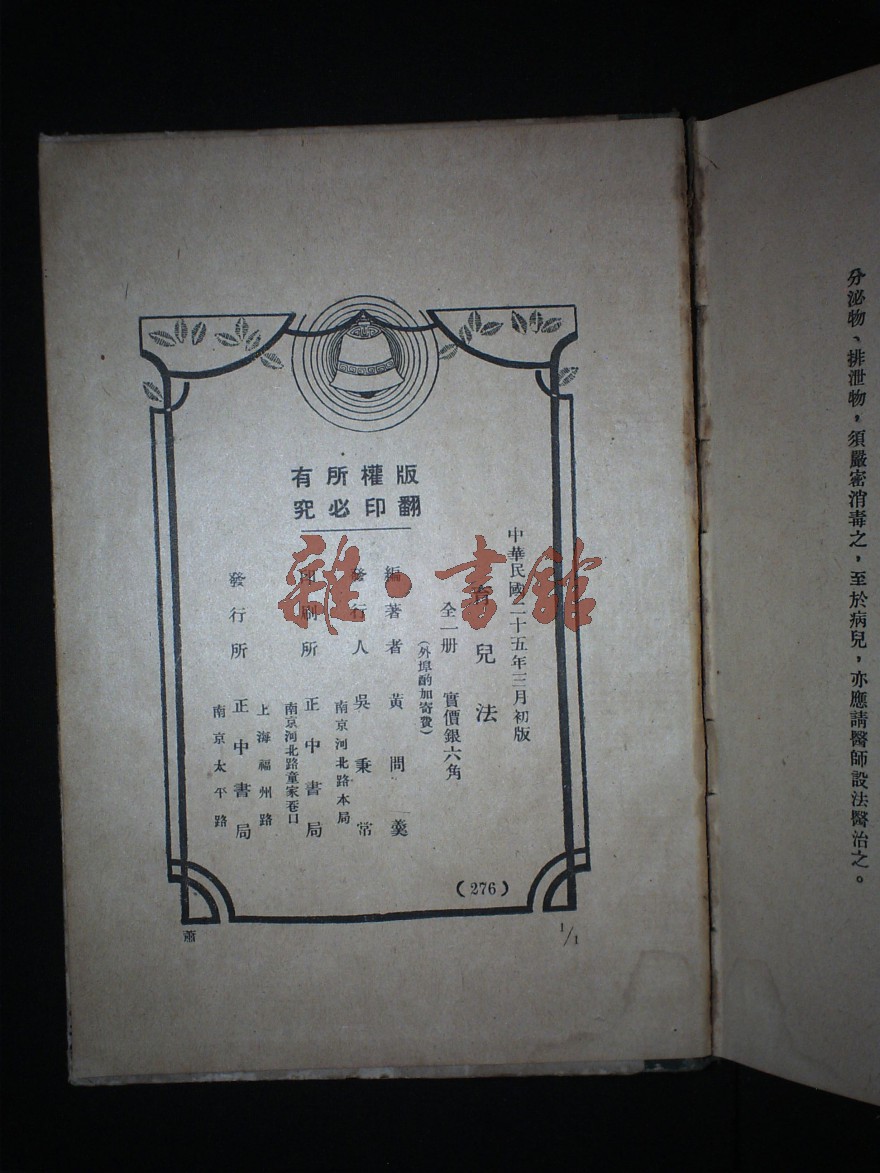 分泌物、排泄物，須嚴密消毒之，至於病兒，亦應請醫師設法醫治之。
版權所有
翻印必究
中華民國二十五年三月初版
育兒法
全一册　實價銀六角
（外埠酌加寄費）
編著者　黃問羹
發行人　吳秉常
南京河北路本局
印刷所　正中書局
南京河北路童家巷口
發行所　正中書局
上海福州路
南京太平路
(276)
蕭
1/1
雜·書館